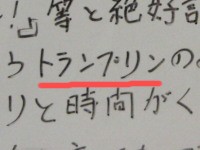 !」等と絶好
トランプリンの
りと時間がく